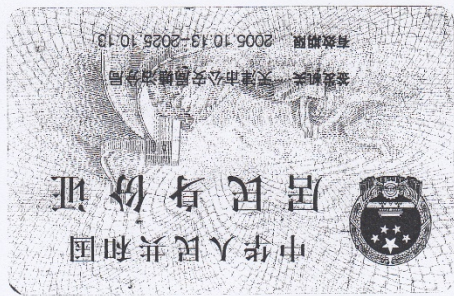 中华人民共和国
居民身份证
签发机关 天津市公安局塘沽分局
有效期限 2005.10.13-2025.10.13